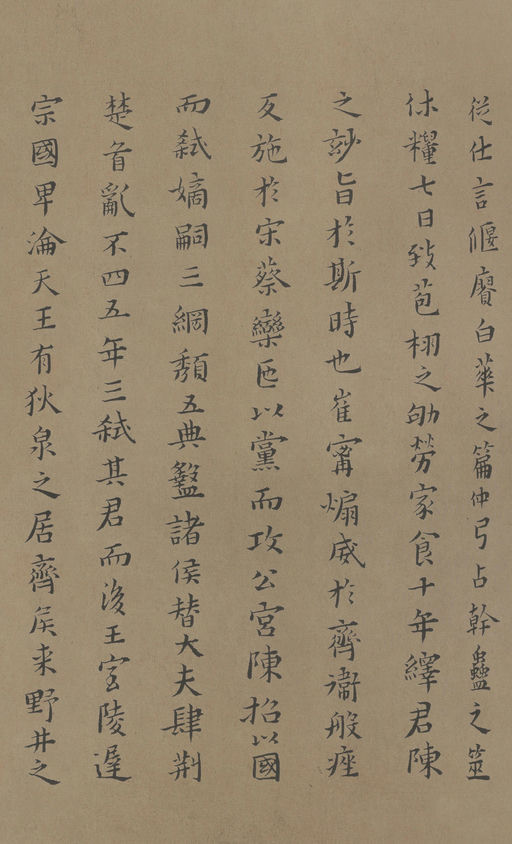 從仕言偃賡白華之篇仲弓占幹蠱之筮
休糧七日致苞栩之劬勞家食十年繹君陳
之訬旨於斯時也崔甯煽威於齊衛般痤
反施於宋蔡欒以黨而攻公宮陳招以國
而弒嫡嗣三綱頹五典盭諸侯替大夫肆荆
楚首亂不四五年三弒其君而後王室陵遲
宗國卑淪天王有狄泉之居齊侯来野井之